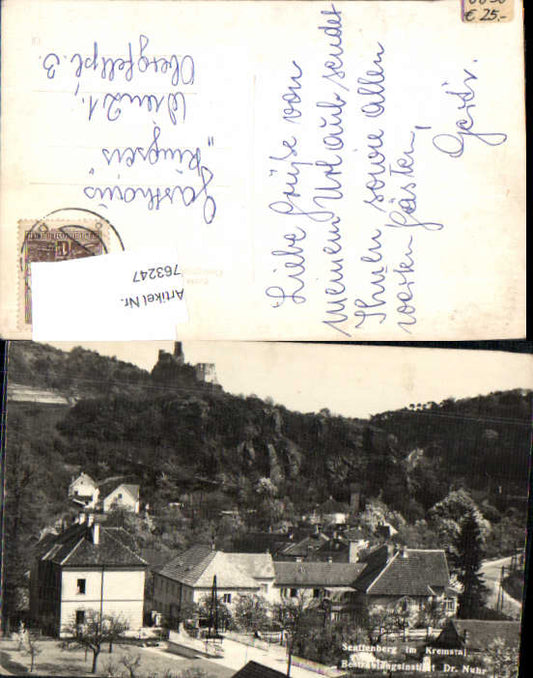 € 25,-
Liebe Grüße von
meinem Urlaub sendet
Ihnen sowie allen
werten Gästen,
Gasthaus
"
Wien 21,
Artikel Nr.
763247
Senftenberg im Kremstal
Bestrahlungsinstitut Dr. Nuhr